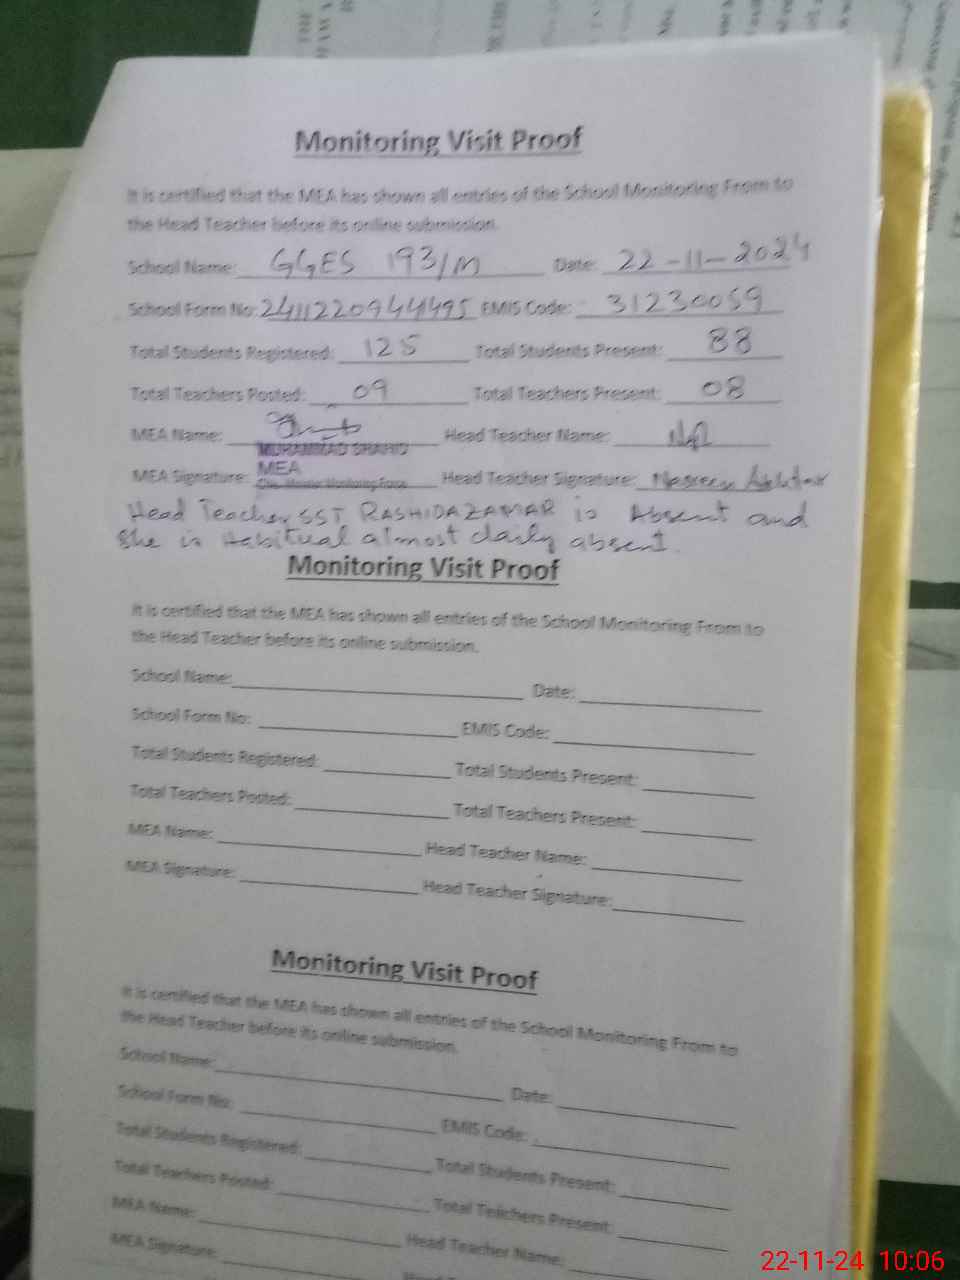 Monitoring Visit Proof
It is certified that the MEA has shown all entries of the School Monitoring From to
the Head Teacher before its online submission.
School Name: GGES 193/M Date: 22-11-2024
School Form No: 2411220944495 EMIS Code: 31230059
Total Students Registered: 125 Total Students Present: 88
Total Teachers Posted: 09 Total Teachers Present: 08
MEA Name: Head Teacher Name:
MUHAMMAD SHAHID
MEA
MEA Signature: Head Teacher Signature: Nasreen Akhtar
Head Teacher SST RASHIDA ZAMAR is Absent and
She is Habitual almost daily absent.
Monitoring Visit Proof
It is certified that the MEA has shown all entries of the School Monitoring From to
the Head Teacher before its online submission.
School Name: Date:
School Form No: EMIS Code:
Total Students Registered: Total Students Present:
Total Teachers Posted: Total Teachers Present:
MEA Name: Head Teacher Name:
MEA Signature: Head Teacher Signature:
Monitoring Visit Proof
It is certified that the MEA has shown all entries of the School Monitoring From to
the Head Teacher before its online submission.
School Name: Date:
School Form No: EMIS Code:
Total Students Registered: Total Students Present:
Total Teachers Posted: Total Teachers Present:
MEA Name: Head Teacher Name:
MEA Signature:
22-11-24 10:06